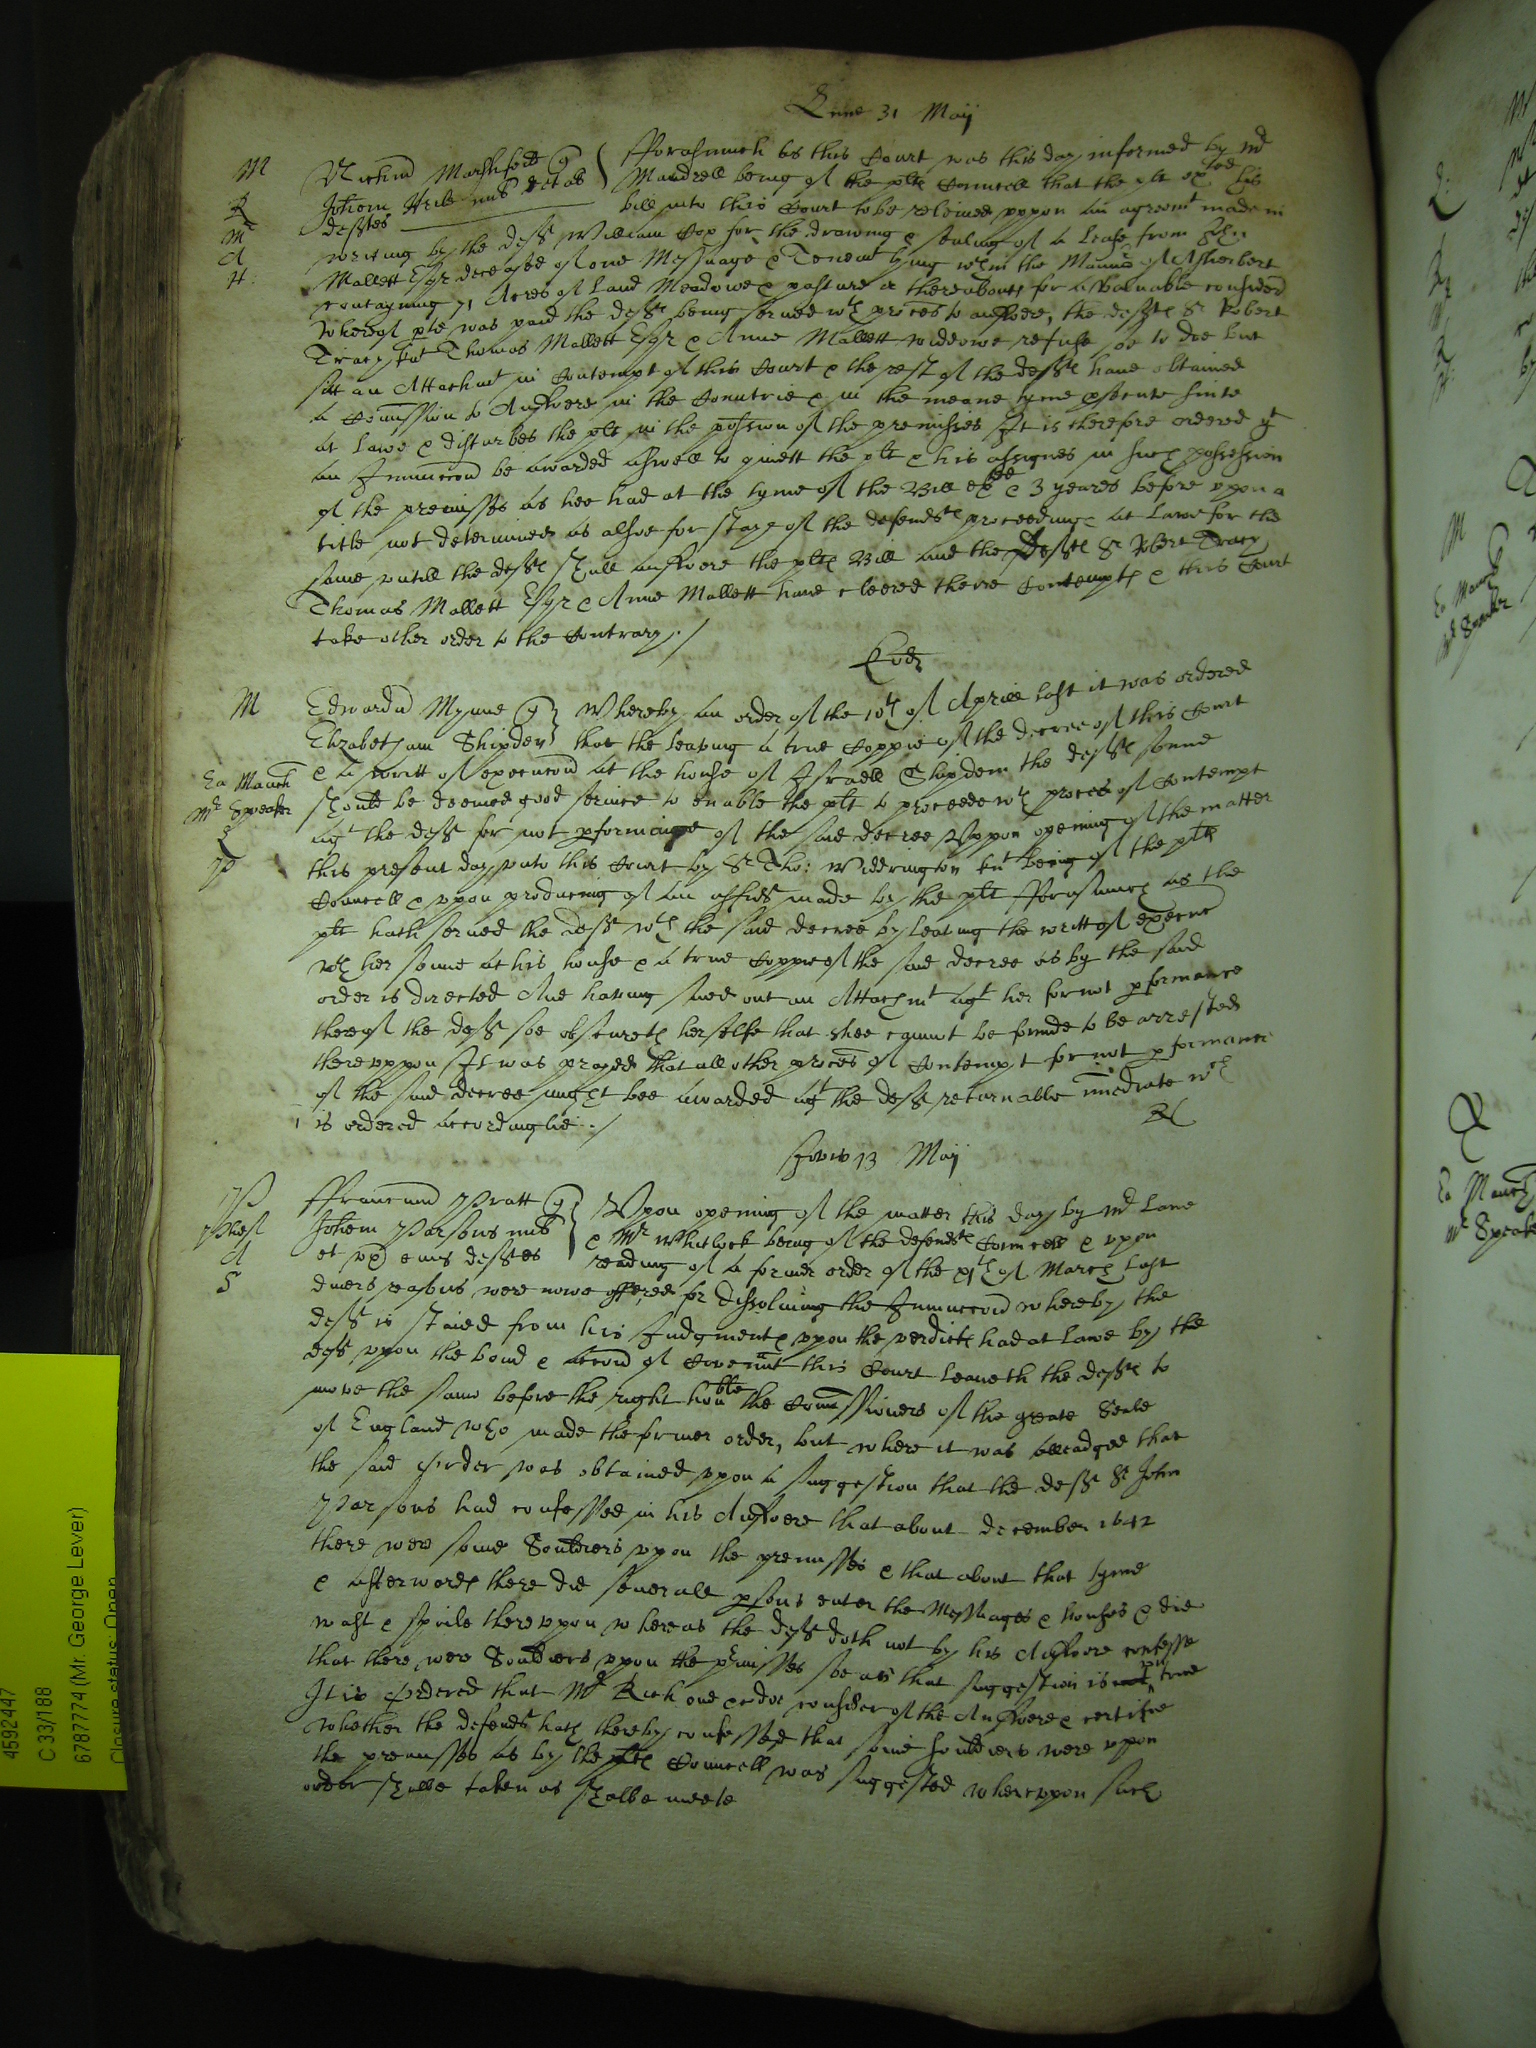 Lune 31 Maij
M
R
Mr
A
H
Richus Marshfeild quer
Johem Stile mil et al
deftes
Fforasmuch as this Court was this day informed by Mr
Maudrell being of the plts Councell that the plt exhibited his
bill into this Court to be releived vppon an agreemt made in
writing by the deft William Cox for the drawing & sealing of a lease from John
Mallett Esqr deceased of one Messuage & Tenemt lying wthin the Mannor of
contayning 71 Acres of land Meadowe & pasture or thereabouts for a valuable
whereof pte was paid the defts being serued wth proces to answere, the defts Sr Robert
Tracy knt Thomas Mallett Esqr & Anne Mallett widdowe refuse soe to doe but
sitt an Attachmt in Contempt of this Court & the rest of the defts haue obtained
a Comission to Answere in the Countrie & in the meane tyme
at lawe & disturbes the plt in the possion of the premisses It is therefore ordered yt
an Iniunccon be awarded aswell to quiett the plt & his assignes in such possession
of the premisses as hee had at the tyme of the Bill exhibited & 3 yeares before vpon a
title not determined as alsoe for stay of the defendts proceedings at lawe for the
same vntill the defts shall answere the plts Bill and the defts Sr Robert Tracy
Thomas Mallett Esqr & Anne Mallett haue cleered theire Contempts & this Court
take other order to the Contrary./
Eod
M
Ex Manch
Mr Speaker
R
P
Edwardus Mynne quer
Elizabetham Shipden
Whereby an order of the 10th of Aprill last it was ordered
that the leaving a true Coppie of the decree of this Court
& a writt of execucon at the house of Israell Shipden the defts sonne
should be deemed good service to enable the plt to proceede wth proces of Contempt
agt the deft for not pformainge of the said decree Vppon opening of the matter
this present day vnto this Court by Sr Tho: Widdrington knt being of the plts
Councell & vpon producing of an affidt made by the plt Fforasmuch as the
plt hath serued the deft wth the said decree by leaving the writt of execuc
wth her sonne at his house & a true Coppie of the said decree as by the said
order is directed And having sued out an Attachmt agt her for not pformance
thereof the deft soe obscureth herselfe that shee cannot be founde to be arrested
therevppon It was prayed that all other proces of Contempt for not pformance
of the said decree might bee awarded agt the deft returnable imediate wch
is ordered accordinglie./
R
Jovis 13 Maij
P
A
S
Ffranciscus Pratt quer
Johem Parsons mil
et vx eius deftes
Vpon opening of the matter this day by Mr Lane
& Mr Whitlock being of the defendts Councell & vpon
reading of a former order of the xjth of March last
divers reasons were nowe offered for dissolving the Iniunccon whereby the
deft is staied from his Iudgments vppon the verdicts had at lawe by the
deft vpon the bond & accon of Covennt this Court leaveth the defts to
move the same before the right honble the Comissioners of the greate Seale
of England who made the former order, but where it was alleadged that
the said order was obtained vpon a suggestion that the deft Sr John
Parsons had confessed in his Answere that about december 1642
there were some Souldiers vpon the premisses & that about that tyme
& afterwards there did severall psons enter the Messuages & houses & did
wast & spoile therevpon whereas the deft doth not by his Answere confesse
that there were Souldiers vpon the pmisses soe as that suggestion is vntrue
It is Ordered that Mr Rich one &c doe consider of the Answere & certifie
whether the defendt hath thereby confessed that some souldiers were vpon
the premisses as by the plts Councell was suggested wherevpon such
order shalbe taken as shalbe meete
M
Ex Manch
Mr Speaker
4592447
C 33/188
6787774 (Mr. George Lever)
Closure status: Open